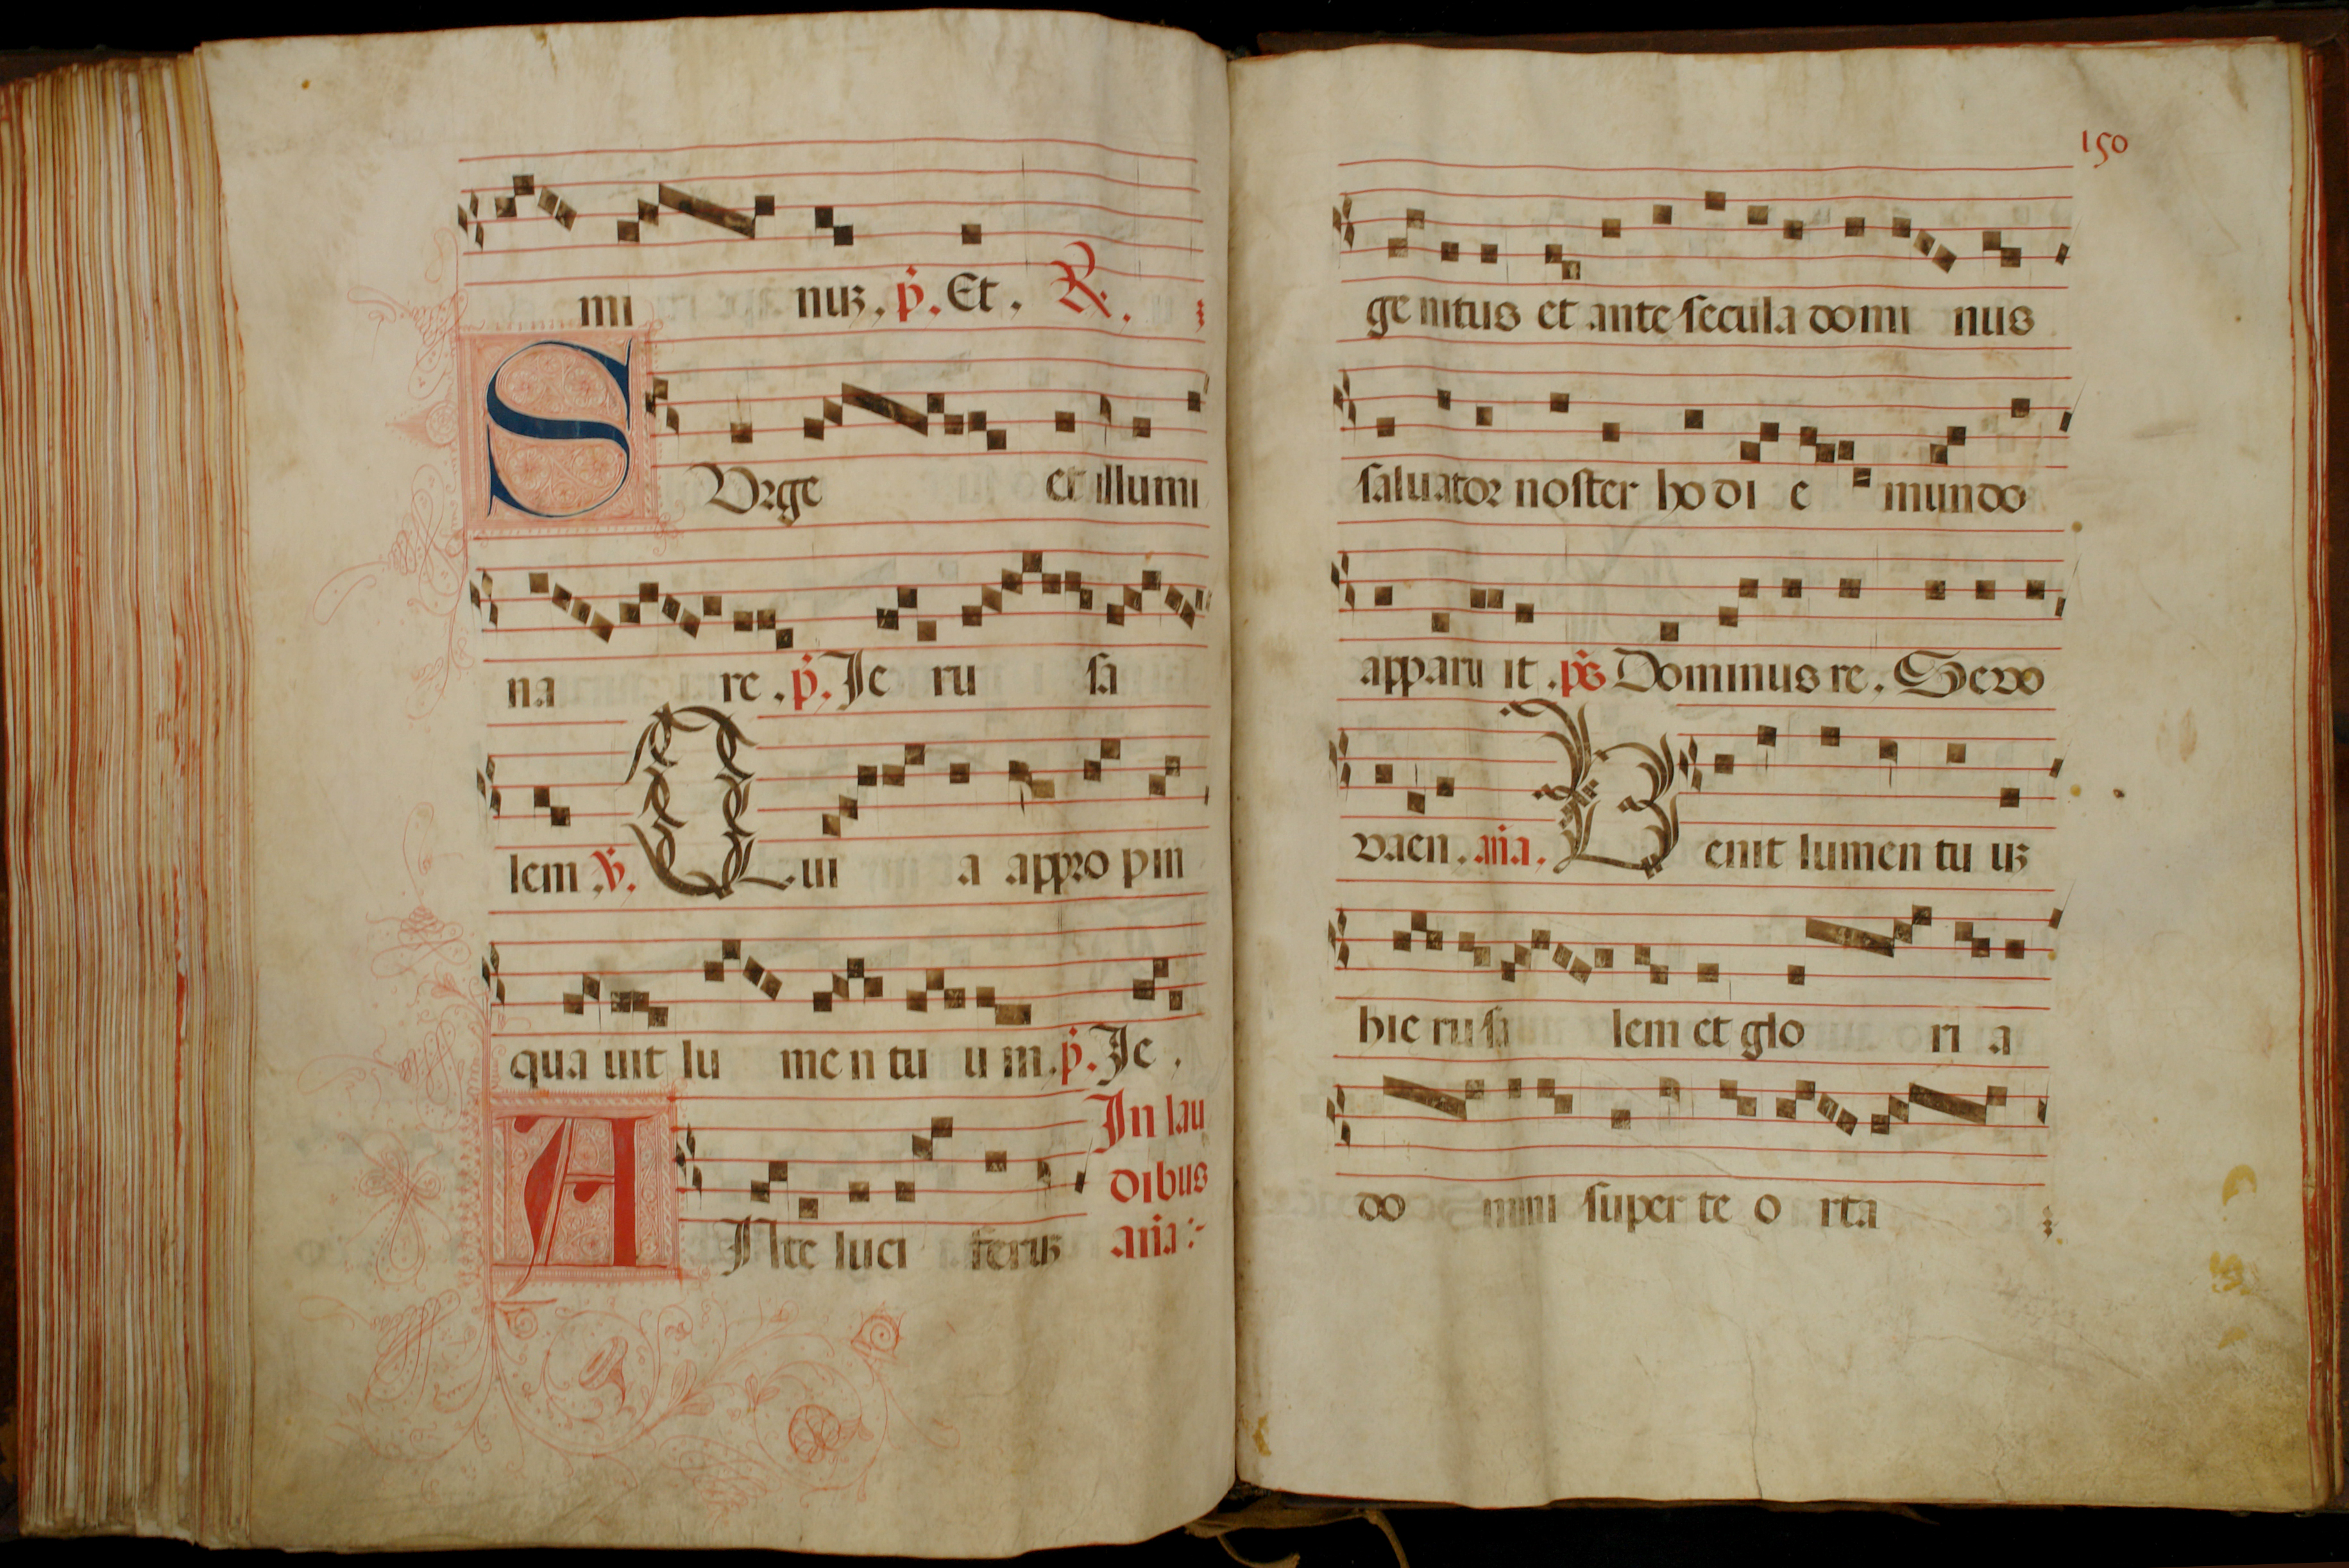 mi nuʒ. p̃. Et. R.
SVrge et illumi
na re. p̃. Je ru sa
lem ṽ. Qui a appro pin
qua uit lu me n tu u m. p̃. Je.
ANte luci feruʒ
In lau
dibus
aña
150
ge nitus et ante secula domi nus
saluator noster ho di e mundo
apparu it. p̃s Dominus re. Seuo
uaen. aña. Venit lumen tu uʒ
hie ru sa lem et glo ri a
do mini super te o rta